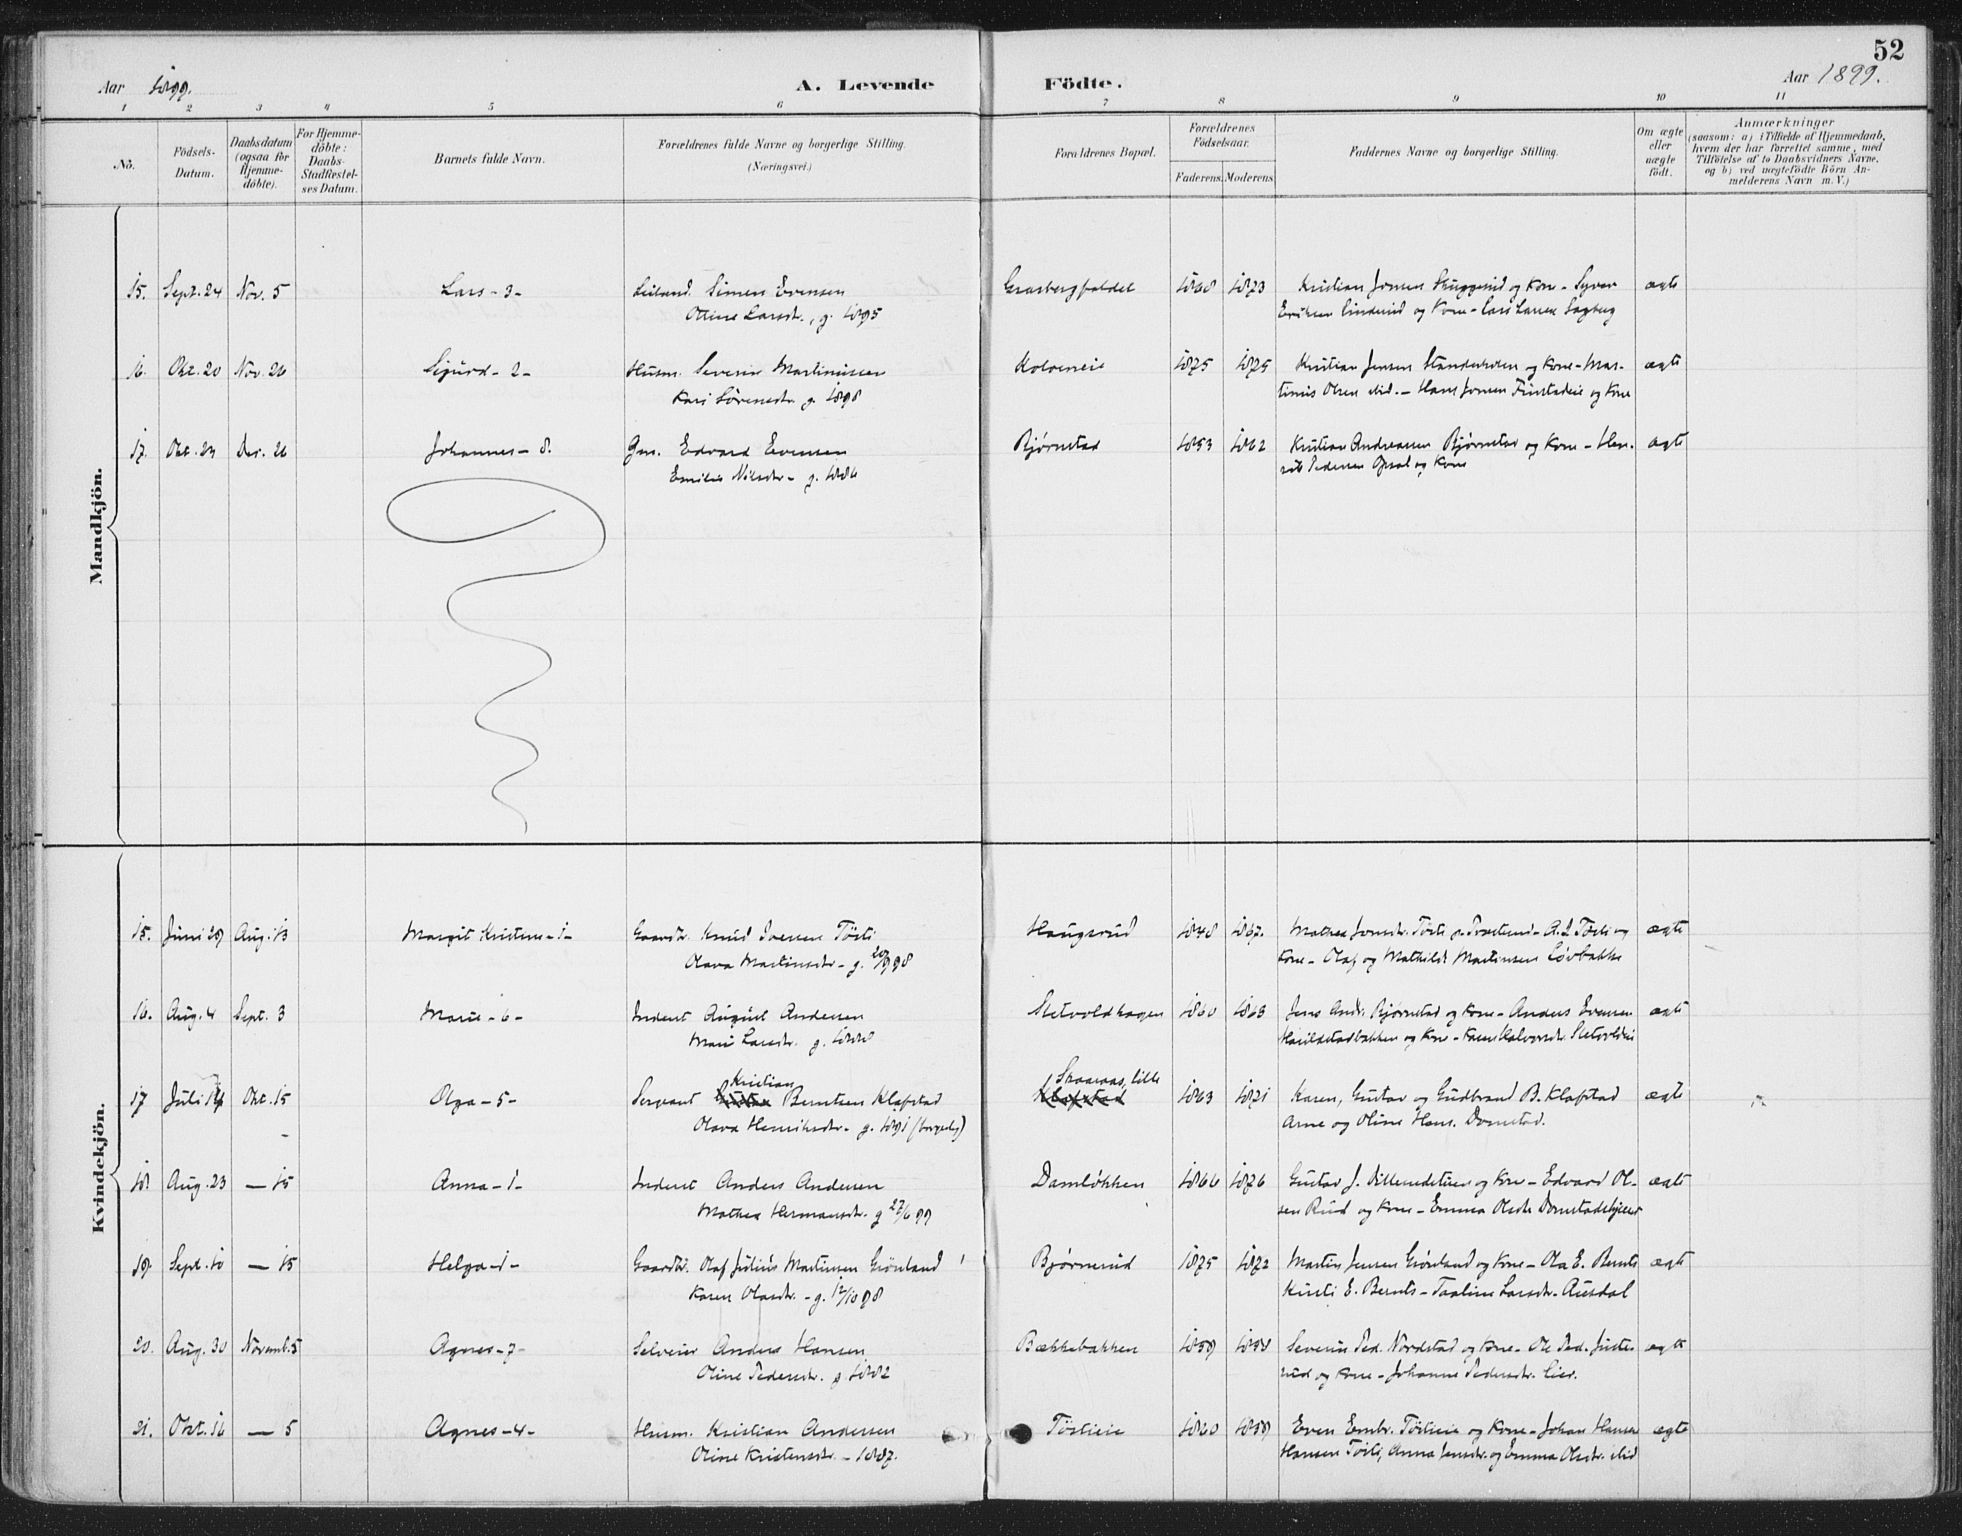 52
Aar 1899. A. Levende Födte. Aar 1899.
1 2 3 4 5 6 7 8 9 10 11
No. Födsels-Datum. Daabsdatum (ogsaa for Hjemmedöbte). For Hjemmedöbte: Daabs-Stadfæstelses Datum. Barnets fulde Navn. Forældrenes fulde Navne og borgerlige Stilling. (Næringsvei.) Forældrenes Bopæl. Forældrenes Födselsaar. Faderens. Moderens. Faddernes Navne og borgerlige Stilling. Om ægte eller uægte födt. Anmærkninger (saasom: a) i Tilfælde af Hjemmedaab, hvem der har forrettet samme, med Tilföielse af to Daabsvidners Navne, og b) ved uægtefödte Börn Anmelderens Navn m. V.)
Mandkjön.
15. Sept. 24 Nov. 5 Lars - 3 - Simen Evensen 1868 1873 Kristian Jonsen og Kone - Syver ægte
Larsdr., g. 1895 Eriksen og Kone - Lars Larsen Sagberg
16. Okt. 20 Nov. 26 Sigurd - 2 - Husm. Severin Martinussen Koloeneie 1875 1875 Kristian Jensen og Kone - Mar- ægte
Kari Sørensdr. g. 1898 tinus Olsen ibid. - Hans Jonsen Finstadeie og Kone
17. Okt. Dec. 26 Johannes - 8. Gm. Edvard Evensen Bjørnstad 1853 1862 Kristian Andreassen Bjørnstad og Kone - Hen- ægte
Emilie Nilsdr - g. 1886 rik Pedersen Opsal og Kone
Kvindekjön.
15. Juni 29 Aug. 13 Margit Kristine - 1 - Gaardbr. Knud Iversen Tösti Haugsrud 1848 1867. Mathea Jonsdr. Tösti - A. I. Tösti og ægte
Olava Martinsdr - g. 20/9 98 Kone - Olaf og Mathilde Martinsen Løvbakke
16. Aug. 4 Sept. 3 Marie - 6 - Inderst August Andersen Sletvoldhagen 1860 1863 Jens Andr. Bjørnstad og Kone - Anders Evensen ægte
Mari Larsdr. g. 1888 og Kone - Karen Halvorsdr. Sletvoldeie
Kristian Skaaraas, lille
17 Juli 14 Okt. 15 Olga - 5 - Sergeant Berntsen Klofstad Klofstad 1863 1871 Karen, Gustav og Gudbrand B. Klofstad ægte
Olava Henriksdr - g. 1891 (borgerlig) Arne og Oline Hans. Domstad.
18. Aug. 23 — 15 Anna - 1 - Inderst Anders Andersen Damløkken 1866 1876 Gustav J. og Kone - Edvard Ol- ægte
Mathea Hermansdr. g 27/6 99 sen Rud og Kone - Emma Olsdr.
19. Sept. 10 — 15 Helga - 1 - Gaardbr. Olaf Julius Martinsen Grönland Bjørnerud 1875 1872 Martin Jensen Grönland og Kone - Ola E. Bernts ægte
Karen Olasdr. - g. 12/10 98 Kirsti E. Bernts - Larsdr.
20. Aug. 30 Novemb. 5 Agnes - 7 - Selveier Anders Hansen Bækkebakken 1859 1858 Severin Ped. Nordstad og Kone - Ole Ped. Juste- ægte
Oline Pedersdr. g. 1882 rud og Kone - Johanne Pedersdr. Lier.
21. Okt. 16 — 5 Agnes - 4 - Husm. Kristian Andersen Töstieie 1860 1859 Even Embr. Töstieie og Kone - Johan Hansen ægte
Oline Kristensdr. - 1887. Hansen Tösti, Anna Jensdr. og Emma Olsdr. ibid